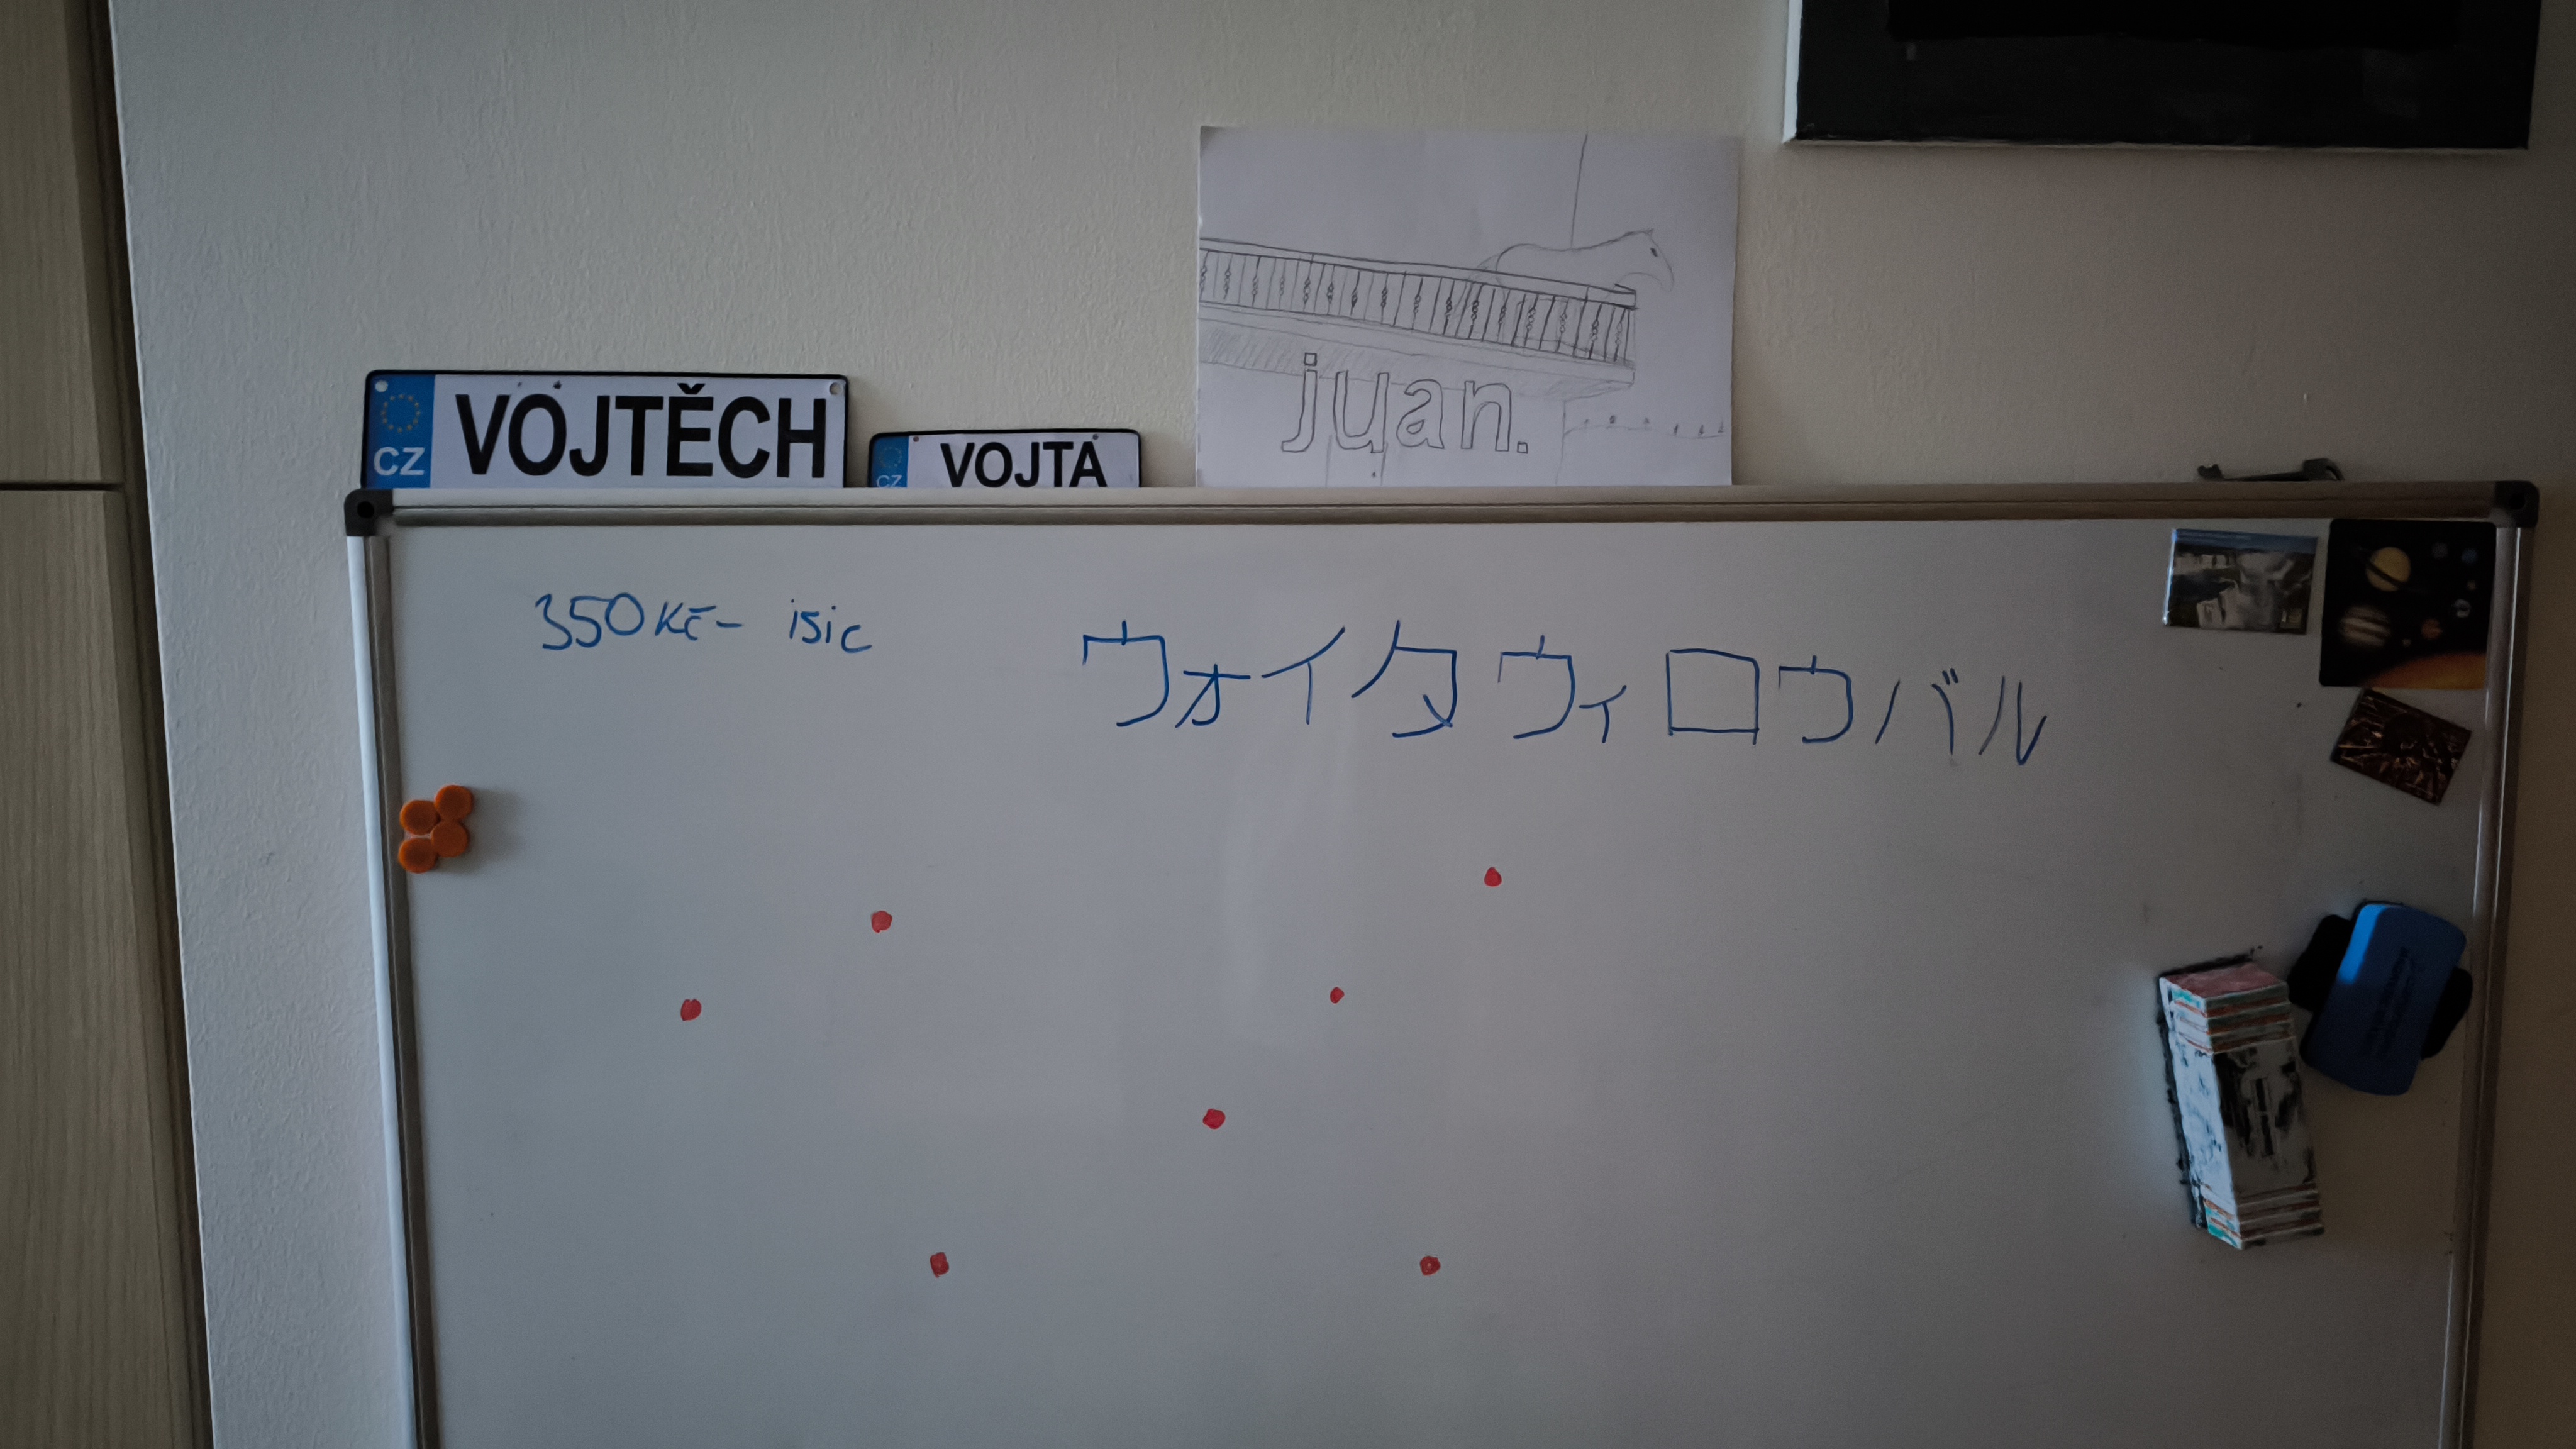 CZ VOJTĚCH
CZ VOJTA
juan.
350 Kč - isic
ウォイタ ウィロウバル